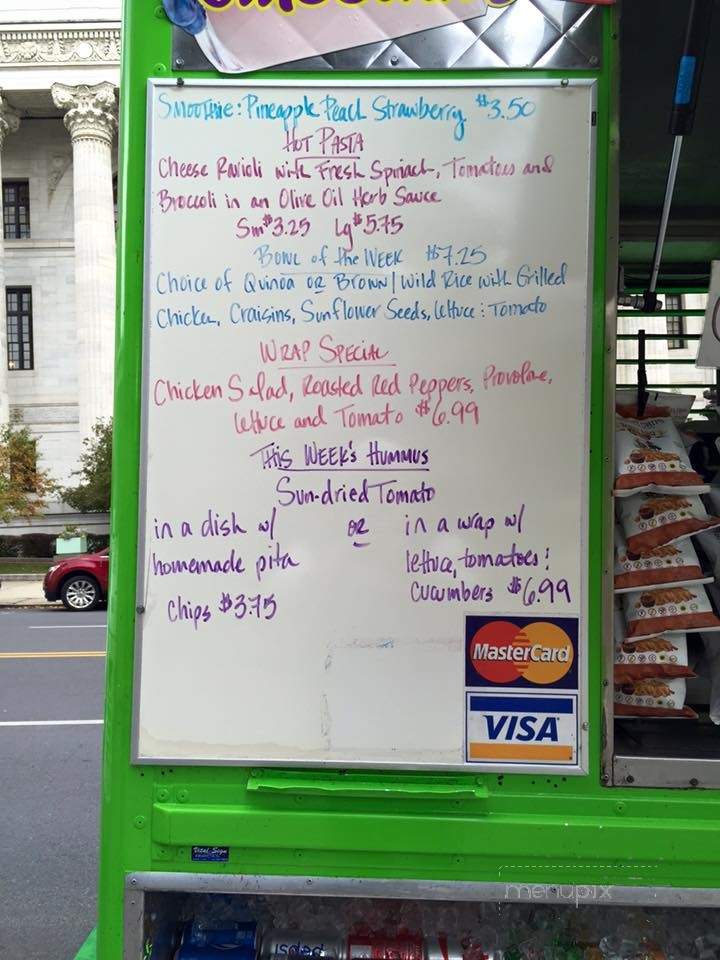 Smoothie: Pineapple Peach Strawberry $3.50
Hot Pasta
Cheese Ravioli with Fresh Spinach, Tomatoes and
Broccoli in an Olive Oil Herb Sauce
Sm $3.25 Lg $5.75
Bowl of the Week $7.25
Choice of Quinoa or Brown/Wild Rice with Grilled
Chicken, Craisins, Sunflower Seeds, lettuce & Tomato
Wrap Special
Chicken Salad, Roasted Red Peppers, Provolone,
lettuce and Tomato $6.99
This Week's Hummus
Sun-dried Tomato
in a dish w/
homemade pita
chips $3.75
or
in a wrap w/
lettuce, tomatoes &
cucumbers $6.99
MasterCard
VISA
Vital Sign
menupix